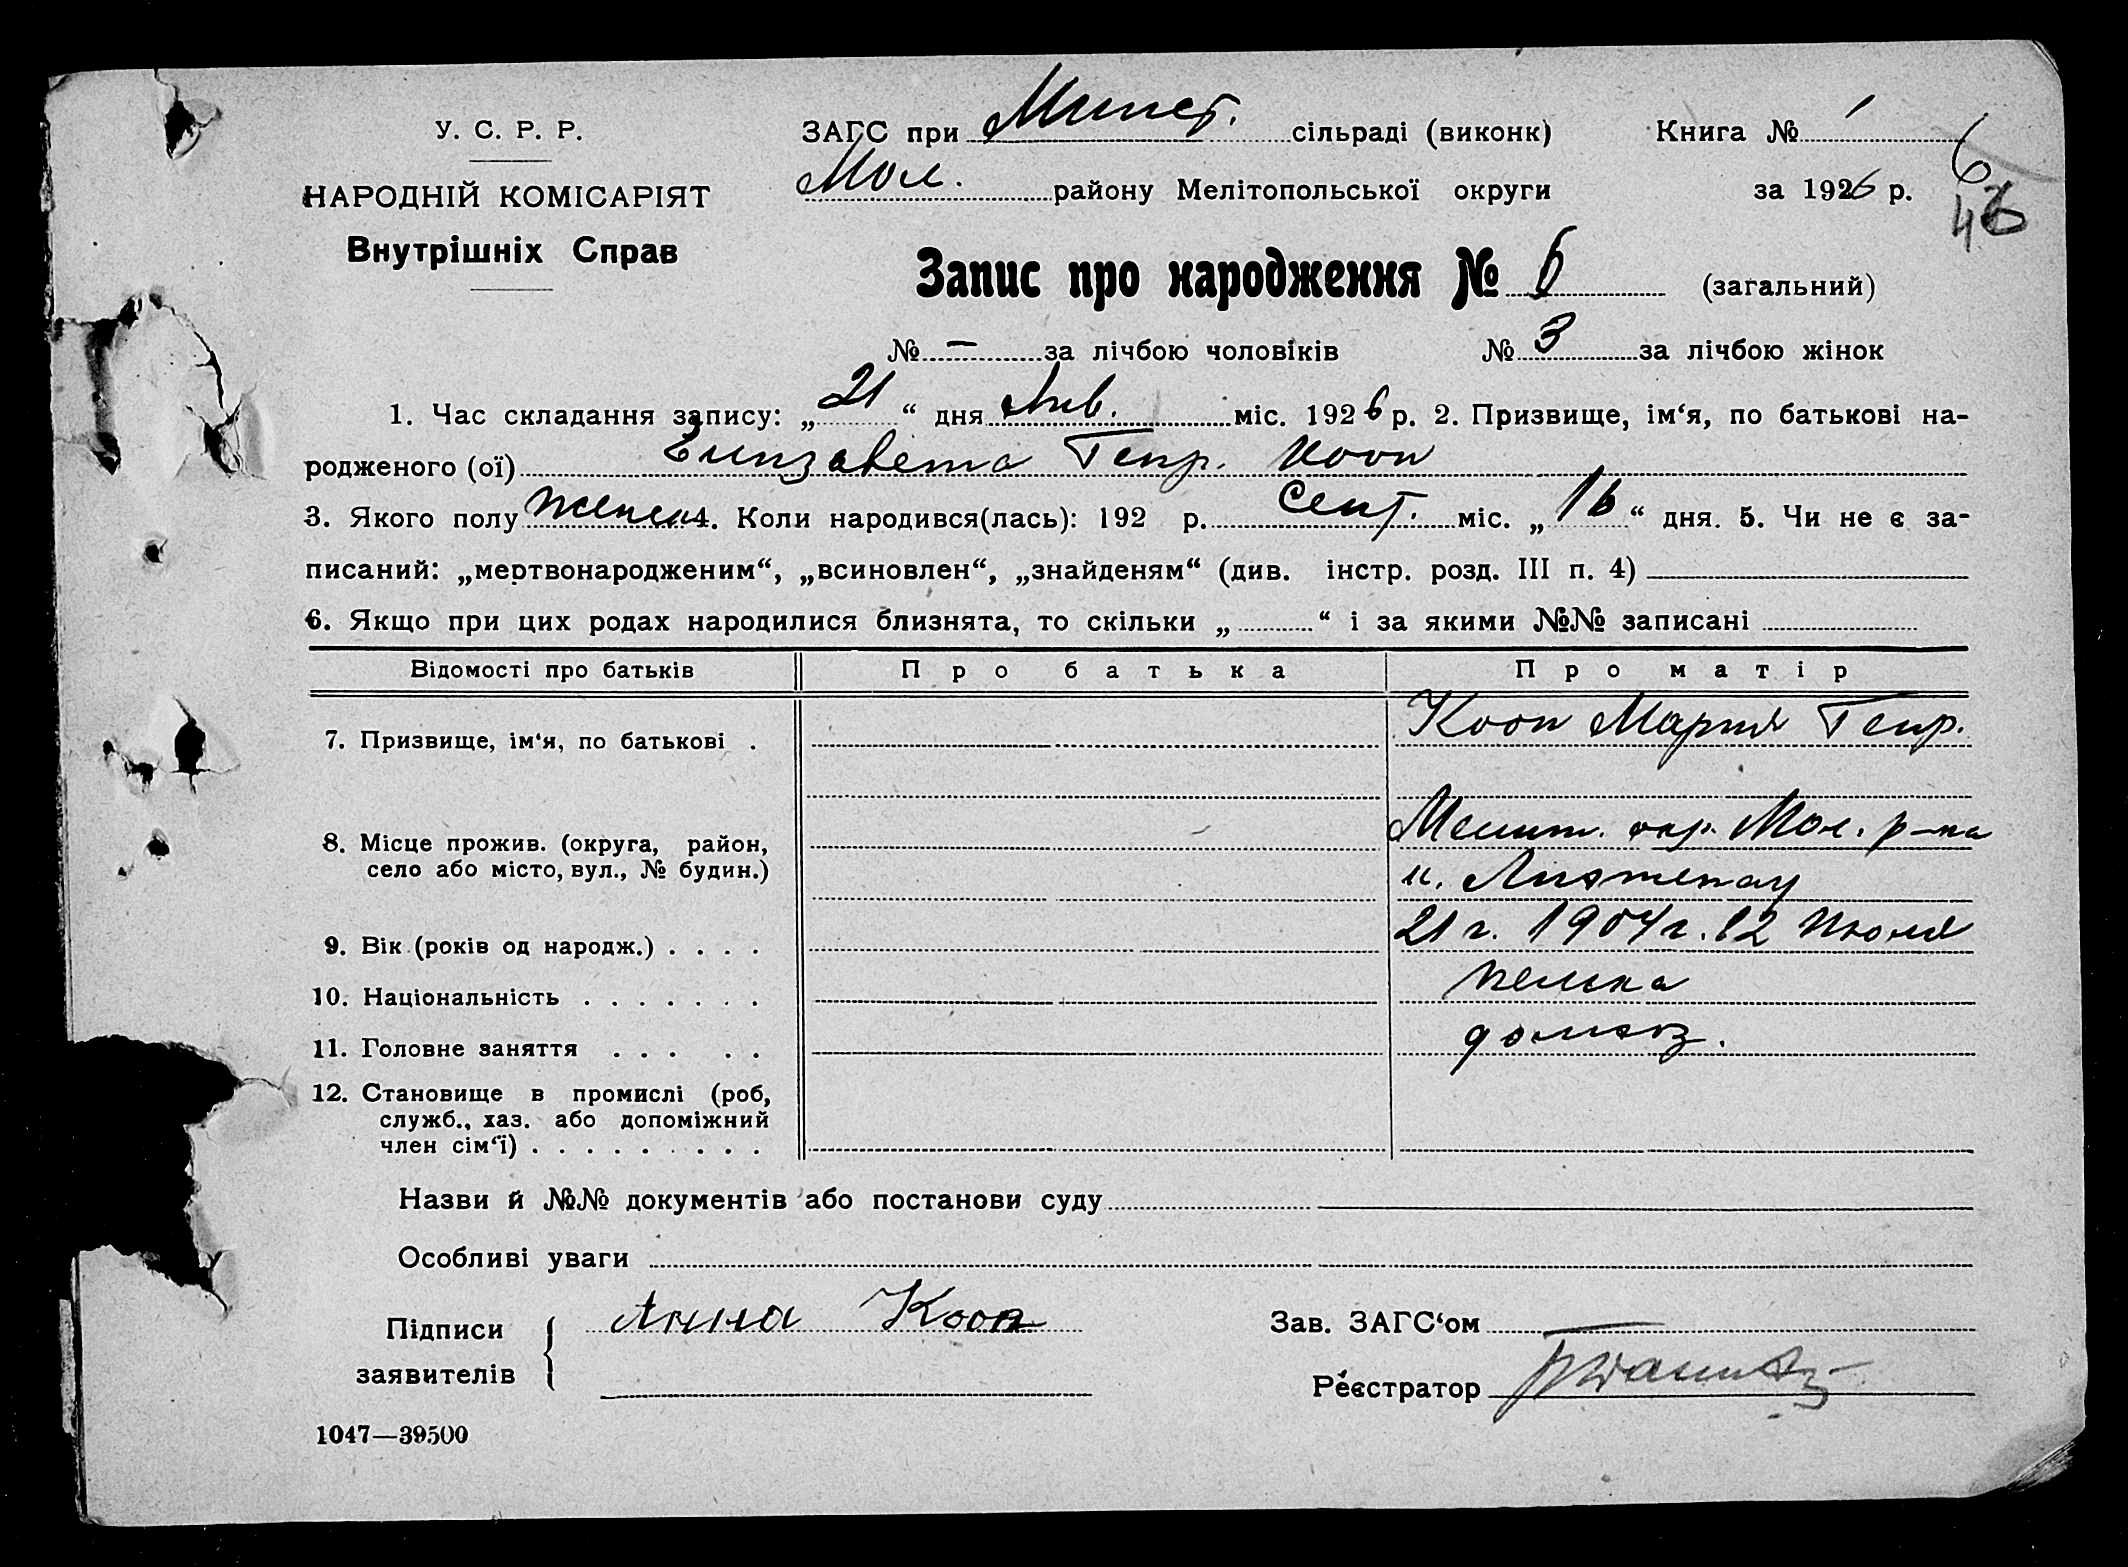 У. С. Р. Р.
НАРОДНІЙ КОМІСАРІЯТ
Внутрішніх Справ
ЗАГС при Минст. сільраді (виконк) Книга № 1
Мол. району Мелітопольської округи за 1926 р.
6
46
Запис про народження № 6 (загальний)
№ – за лічбою чоловіків № 3 за лічбою жінок
1. Час складання запису: „21“ дня Янв. міс. 1926 р. 2. Призвище, ім‘я, по батькові на-
родженого (ої) Елизавета Генр. Кооп
3. Якого полу женск 4. Коли народився(лась): 192 р. Сент. міс. „16“ дня. 5. Чи не є за-
писаний: „мертвонародженим“, „всиновлен“, „знайденям“ (див. інстр. розд. III п. 4)
6. Якщо при цих родах народилися близнята, то скільки „ “ і за якими №№ записані
Відомості про батьків Про батька Про матір
7. Призвище, ім‘я, по батькові . Кооп Мария Генр.
8. Місце прожив. (округа, район, село або місто, вул., № будин.) Мелит. окр. Мол. р-на
к. Лихтенау
9. Вік (років од народж.) . . . . 21 г. 1904 г. 12 Июля
10. Національність . . . . . . . немка
11. Головне заняття . . . . . домхоз.
12. Становище в промислі (роб,
служб., хаз. або допоміжний
член сім‘ї) . . . . . . . . .
Назви й №№ документів або постанови суду
Особливі уваги
Підписи заявителів { Анна Кооп
Зав. ЗАГС‘ом
Реєстратор
1047—39500